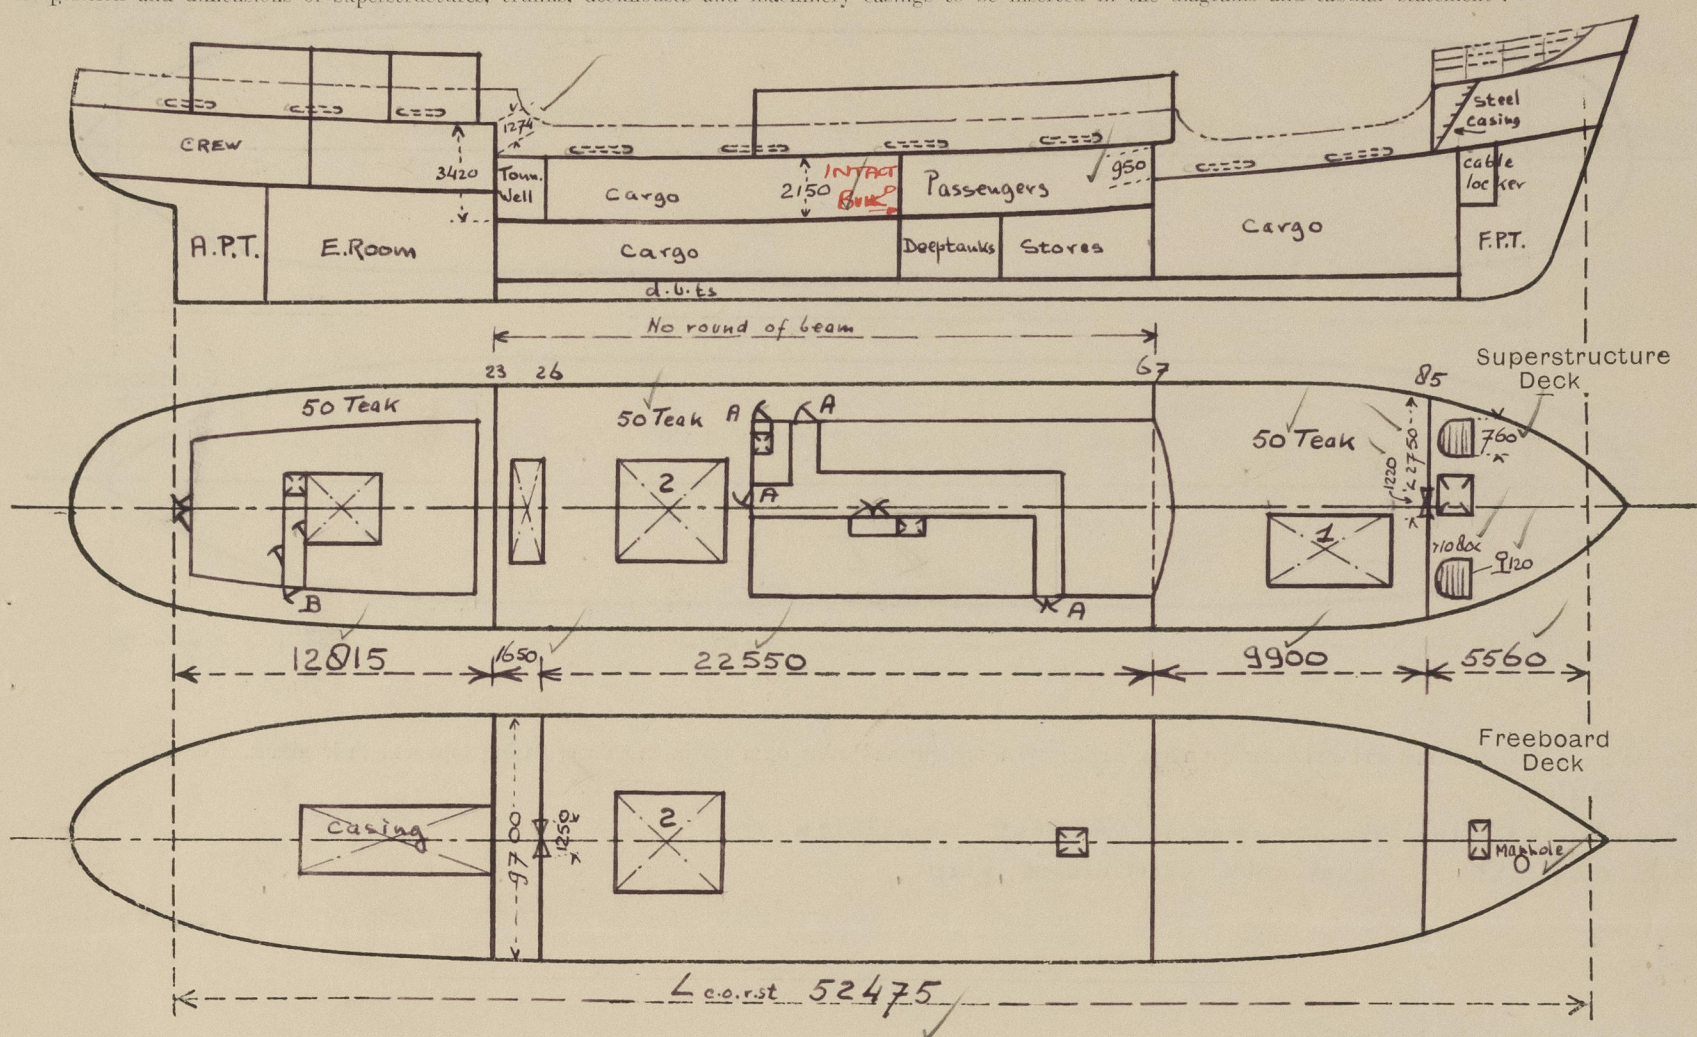 position and dimensions of superstructures, trunks, deckhouses and machinery casings to be inserted in the diagrams and tabular statement:
CREW
3420
1274
Tonn.
Well
Cargo
2150
INTACT
BULKD
Passengers
950
steel
casing
cable
locker
A.P.T.
E.Room
Cargo
Deeptanks
Stores
Cargo
F.P.T.
d.b.ts
No round of beam
Superstructure
Deck
23
26
67
85
50 Teak
50 Teak
A
A
50 Teak
2750
1220
760
2
A
1
120
B
A
12015
1650
22550
9900
5560
Freeboard
Deck
casing
9700
1250
2
Manhole
L c.o.r.st 52475